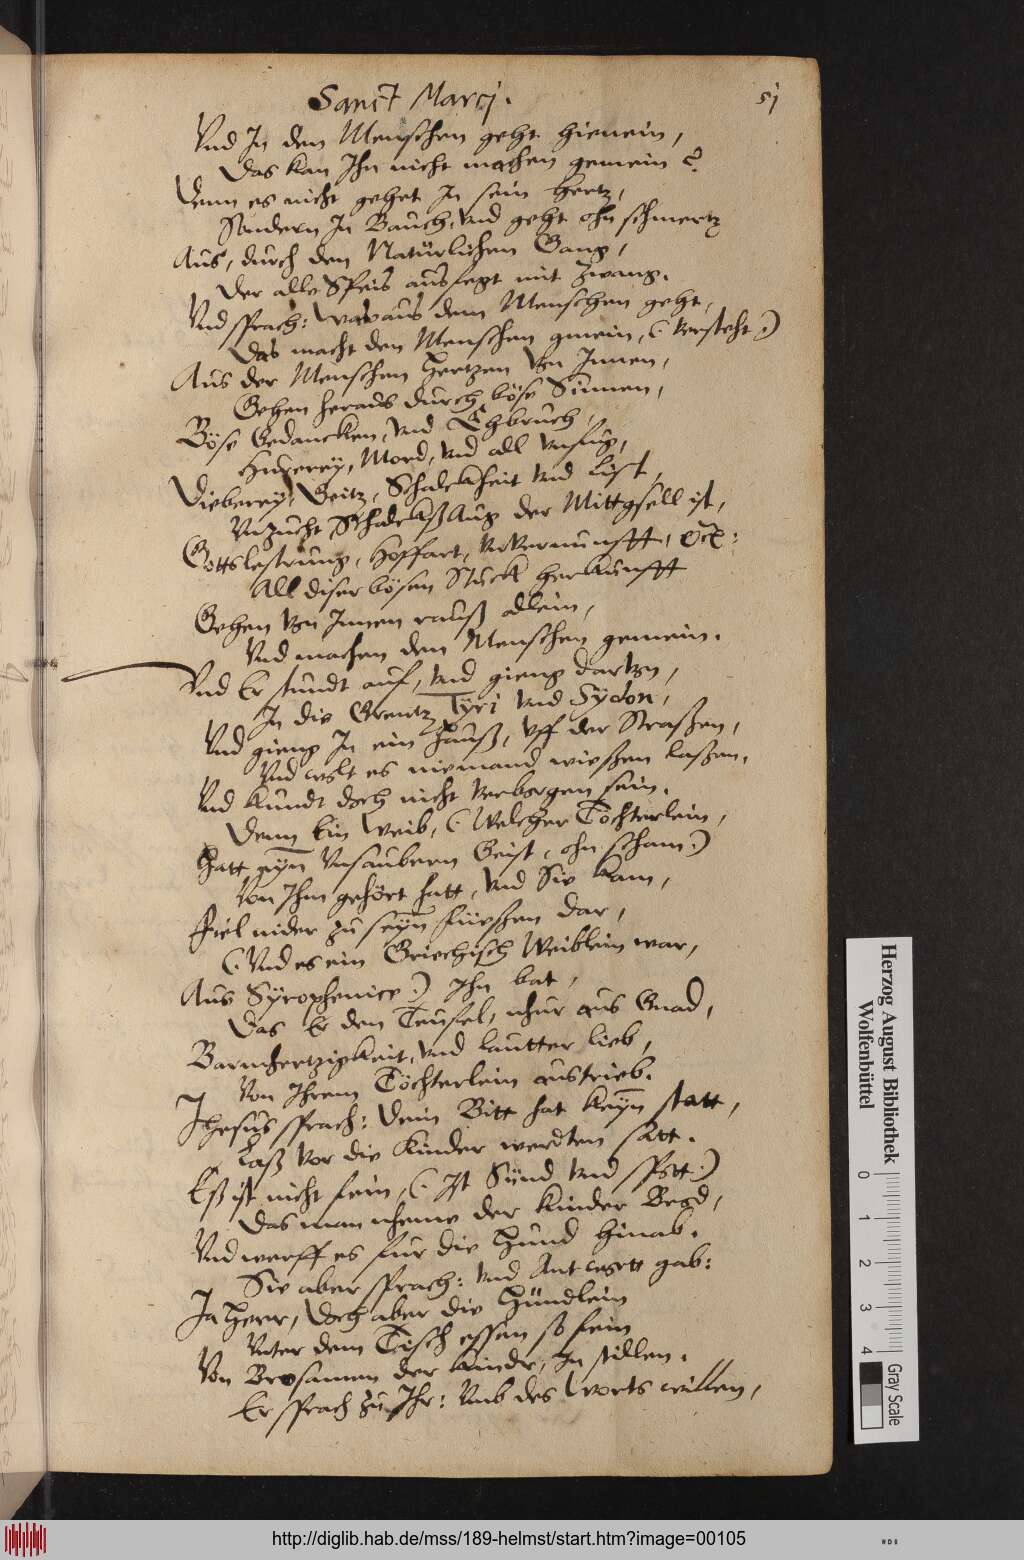 Sanct Marcj.
51
Vnd In den Menschen geht hienein,
Das kan Ihn nicht machen gemein?
Denn es nicht gehet In sein hertz,
Sondern In Bauch, vnd geht ohn schmertz
Aus, durch den Natürlichen Gang,
Der alle Speis ausfegt mit Zwang.
Vnd sprach: Was aus dem Menschen geht,
Das macht den Menschen gmein, (: versteht :)
Aus der Menschen Hertzen von Innen,
Gehen heraus durch böse Sinnen,
Böse Gedancken, vnd Ehbruch,
Hurerey, Mord, vnd all vnfug,
Dieberey, Geitz, Schalckheit vnd list,
Vnzucht, Schalckß Aug der Mittgsell ist,
Gottslestrung, Hoffart, Vnvernunfft, etc:
All diser bösen Stuck herkunfft
Gehen von Innen rauß allein,
Vnd machen den Menschen gemein.
Vnd Er stundt auf, vnd gieng darvon,
In die Grentz Tyri vnd Sydon,
Vnd gieng In ein Hauß, vff der Straßen,
Vnd wolt es niemand wießen laßen.
Vnd kundt doch nicht verborgen sein.
Denn Ein Weib, (: Welcher Töchterlein,
Hatt eyn Vnsaubern Geist, ohn scham :)
Von Ihm gehört hatt, vnd Sie kam,
Fiel nider zu seyn füeßen dar,
(: Vnd es ein Griechisch Weiblein war,
Aus Syrophenice :) Ihn bat,
Das Er den Teufel, nhur aus Gnad,
Barmhertzigkeit, vnd lautter lieb,
Von Ihrem Töchterlein austrieb.
Jhesus sprach: Dein Bitt hat keyn statt,
Laß vor die Kinder werdten satt.
Eß ist nicht fein, (: Ist Sünd vnd spott :)
Das man nheme der kinder Brod,
Vnd werff es fur die Hund hinab.
Sie aber sprach: vnd Antwortt gab:
Ja Herr, doch aber die Hündlein
Vnter dem Tisch essen so fein
Von Brosamen der kindr, In stillen.
Er sprach zu Ihr: Vmb des Worts willen,
Herzog August Bibliothek
Wolfenbüttel
0 1 2 3 4
Gray Scale
http://diglib.hab.de/mss/189-helmst/start.htm?image=00105